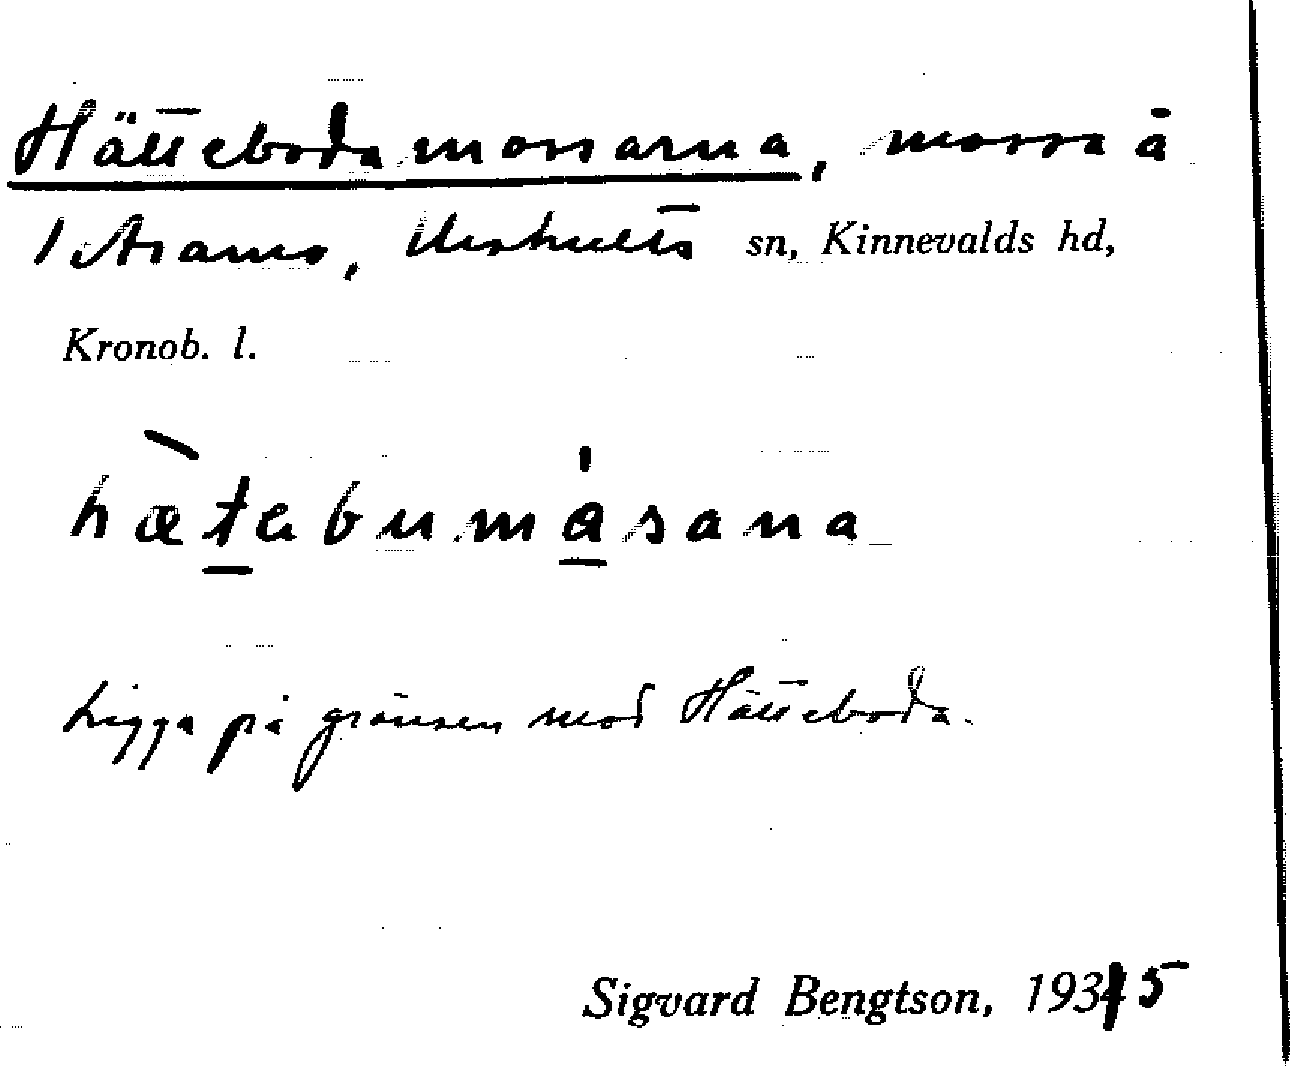 Hättebodamossarna, mossa å
1 Aramo, Urshults sn, Kinnevalds hd,
Kronob. l.
hætebumåsana
Ligga på gränsen mot Hätteboda.
Sigvard Bengtson, 1935